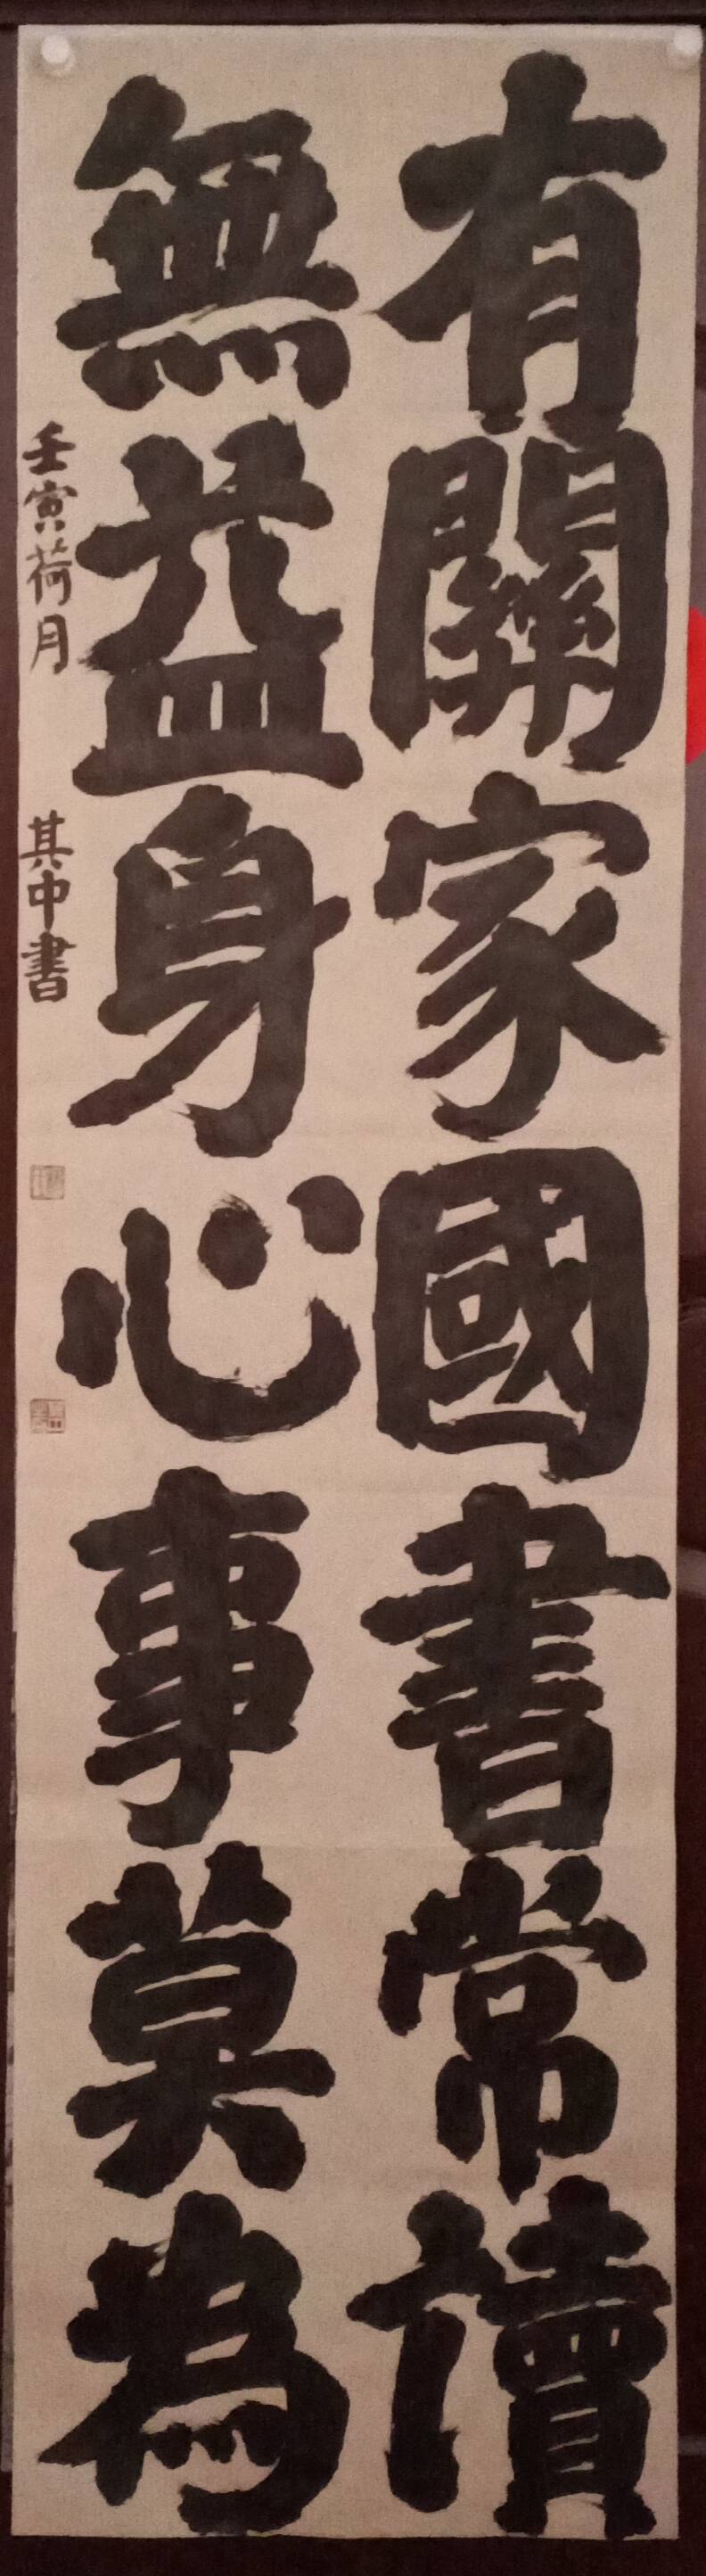 有關家國書常讀
無益身心事莫為
壬寅荷月
其中書